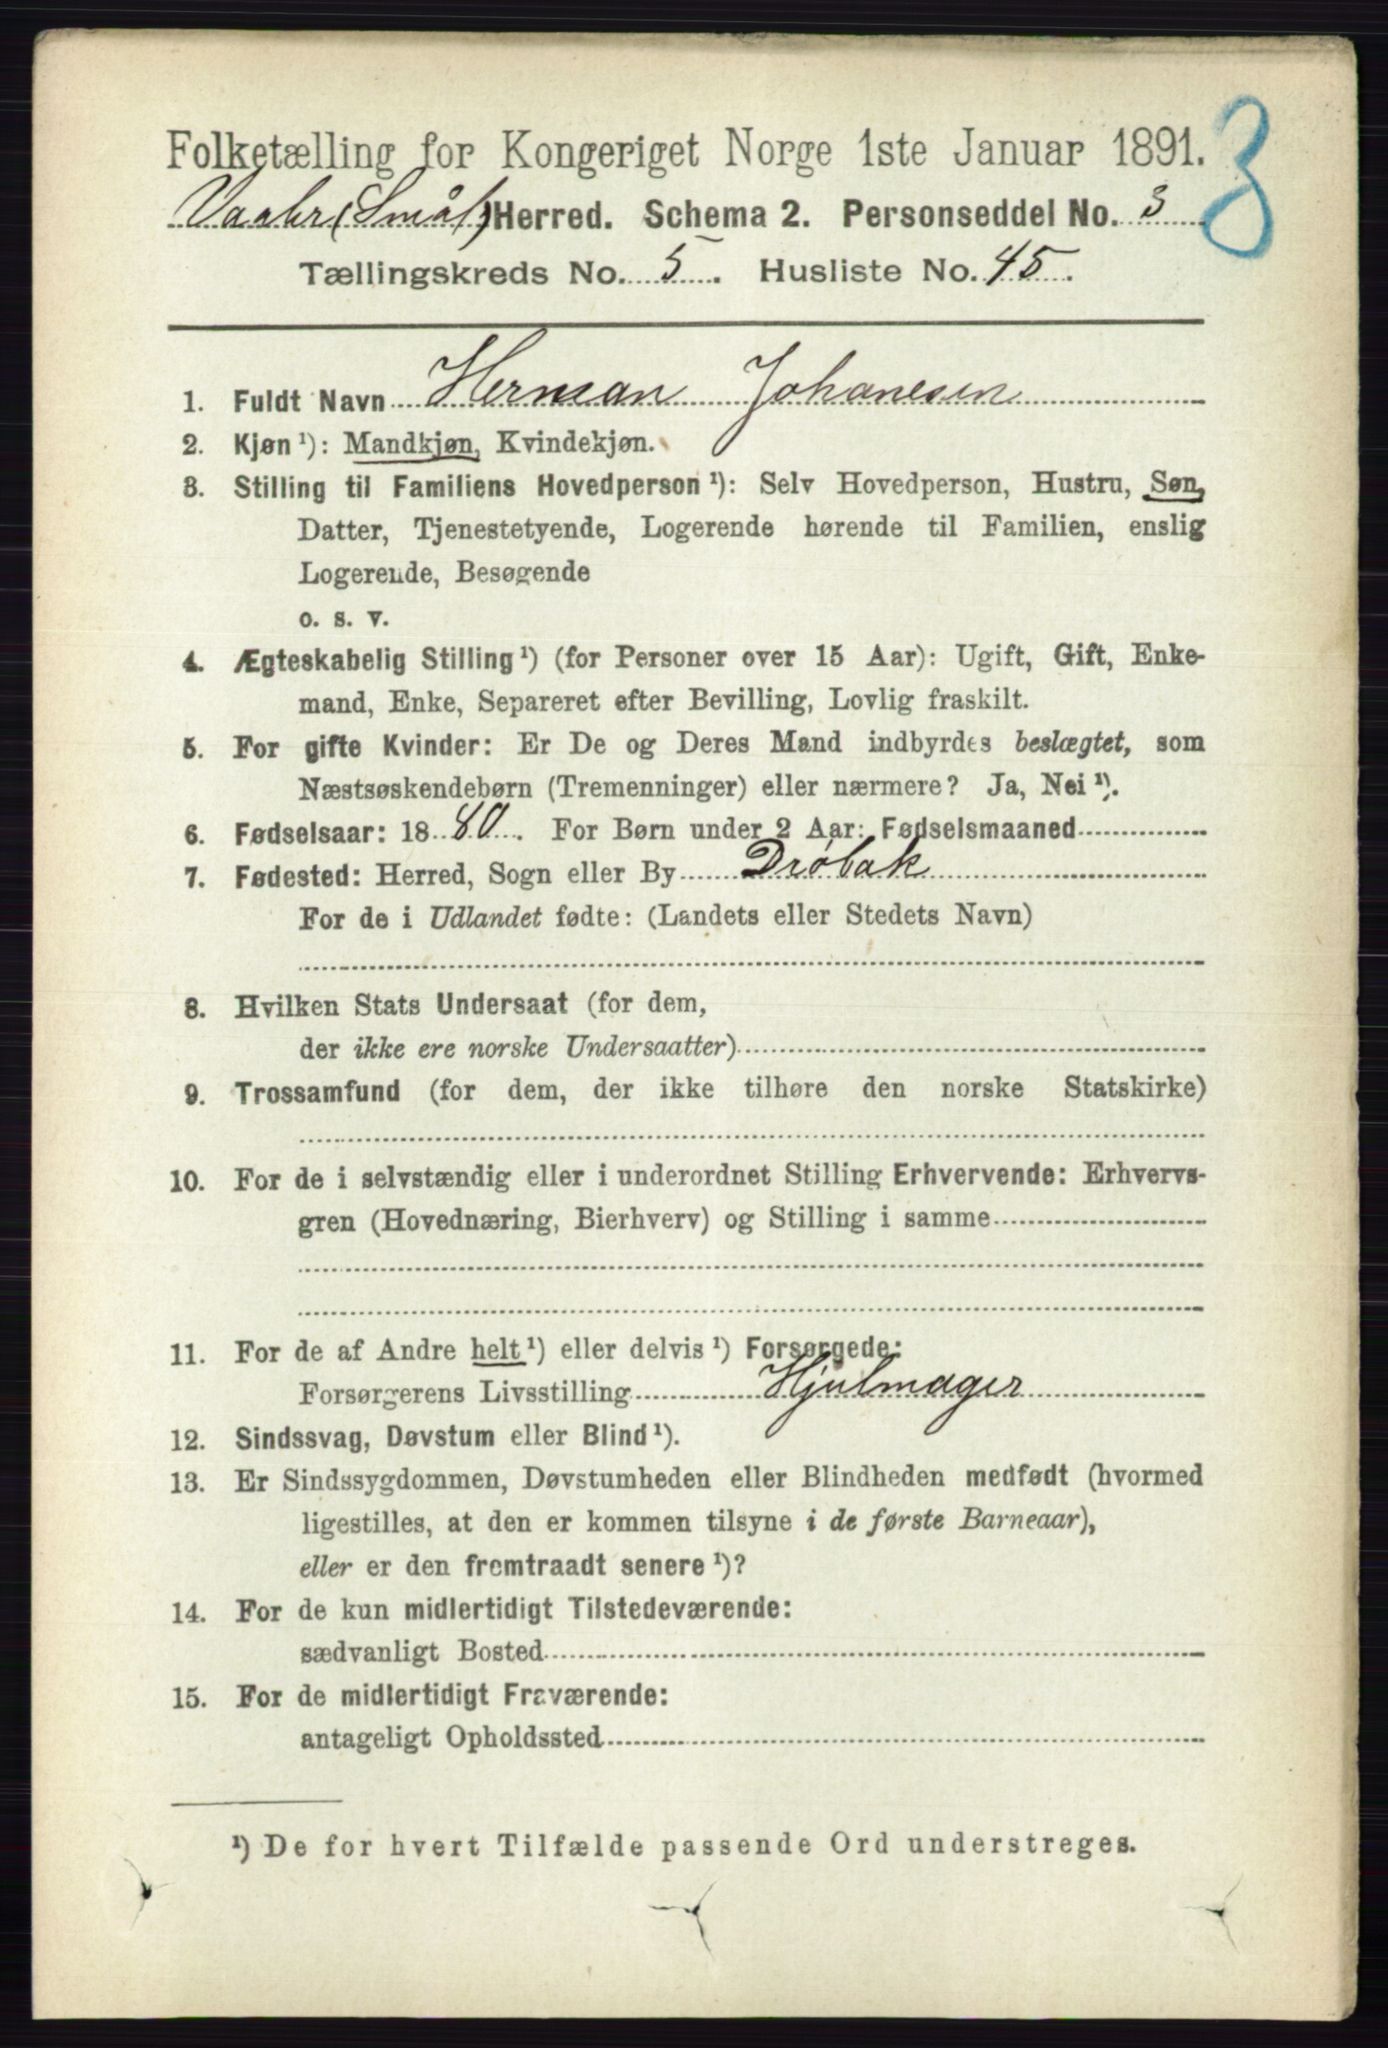 3
Folketælling for Kongeriget Norge 1ste Januar 1891.
Vaaler (Smål) Herred. Schema 2. Personseddel No. 3
Tællingskreds No. 5. Husliste No. 45.
1. Fuldt Navn Herman Johanesen
2. Kjøn ¹): Mandkjøn, Kvindekjøn.
3. Stilling til Familiens Hovedperson ¹): Selv Hovedperson, Hustru, Søn,
Datter, Tjenestetyende, Logerende hørende til Familien, enslig
Logerende, Besøgende
o. s. v.
4. Ægteskabelig Stilling ¹) (for Personer over 15 Aar): Ugift, Gift, Enke-
mand, Enke, Separeret efter Bevilling, Lovlig fraskilt.
5. For gifte Kvinder: Er De og Deres Mand indbyrdes beslægtet, som
Næstsøskendebørn (Tremenninger) eller nærmere? Ja, Nei ¹).
6. Fødselsaar: 1880. For Børn under 2 Aar: Fødselsmaaned
7. Fødested: Herred, Sogn eller By Drøbak
For de i Udlandet fødte: (Landets eller Stedets Navn)
8. Hvilken Stats Undersaat (for dem,
der ikke ere norske Undersaatter)
9. Trossamfund (for dem, der ikke tilhøre den norske Statskirke)
10. For de i selvstændig eller i underordnet Stilling Erhvervende: Erhvervs-
gren (Hovednæring, Bierhverv) og Stilling i samme
11. For de af Andre helt ¹) eller delvis ¹) Forsørgede:
Forsørgerens Livsstilling Hjulmager
12. Sindssvag, Døvstum eller Blind ¹).
13. Er Sindssygdommen, Døvstumheden eller Blindheden medfødt (hvormed
ligestilles, at den er kommen tilsyne i de første Barneaar),
eller er den fremtraadt senere ¹)?
14. For de kun midlertidigt Tilstedeværende:
sædvanligt Bosted
15. For de midlertidigt Fraværende:
antageligt Opholdssted
¹) De for hvert Tilfælde passende Ord understreges.